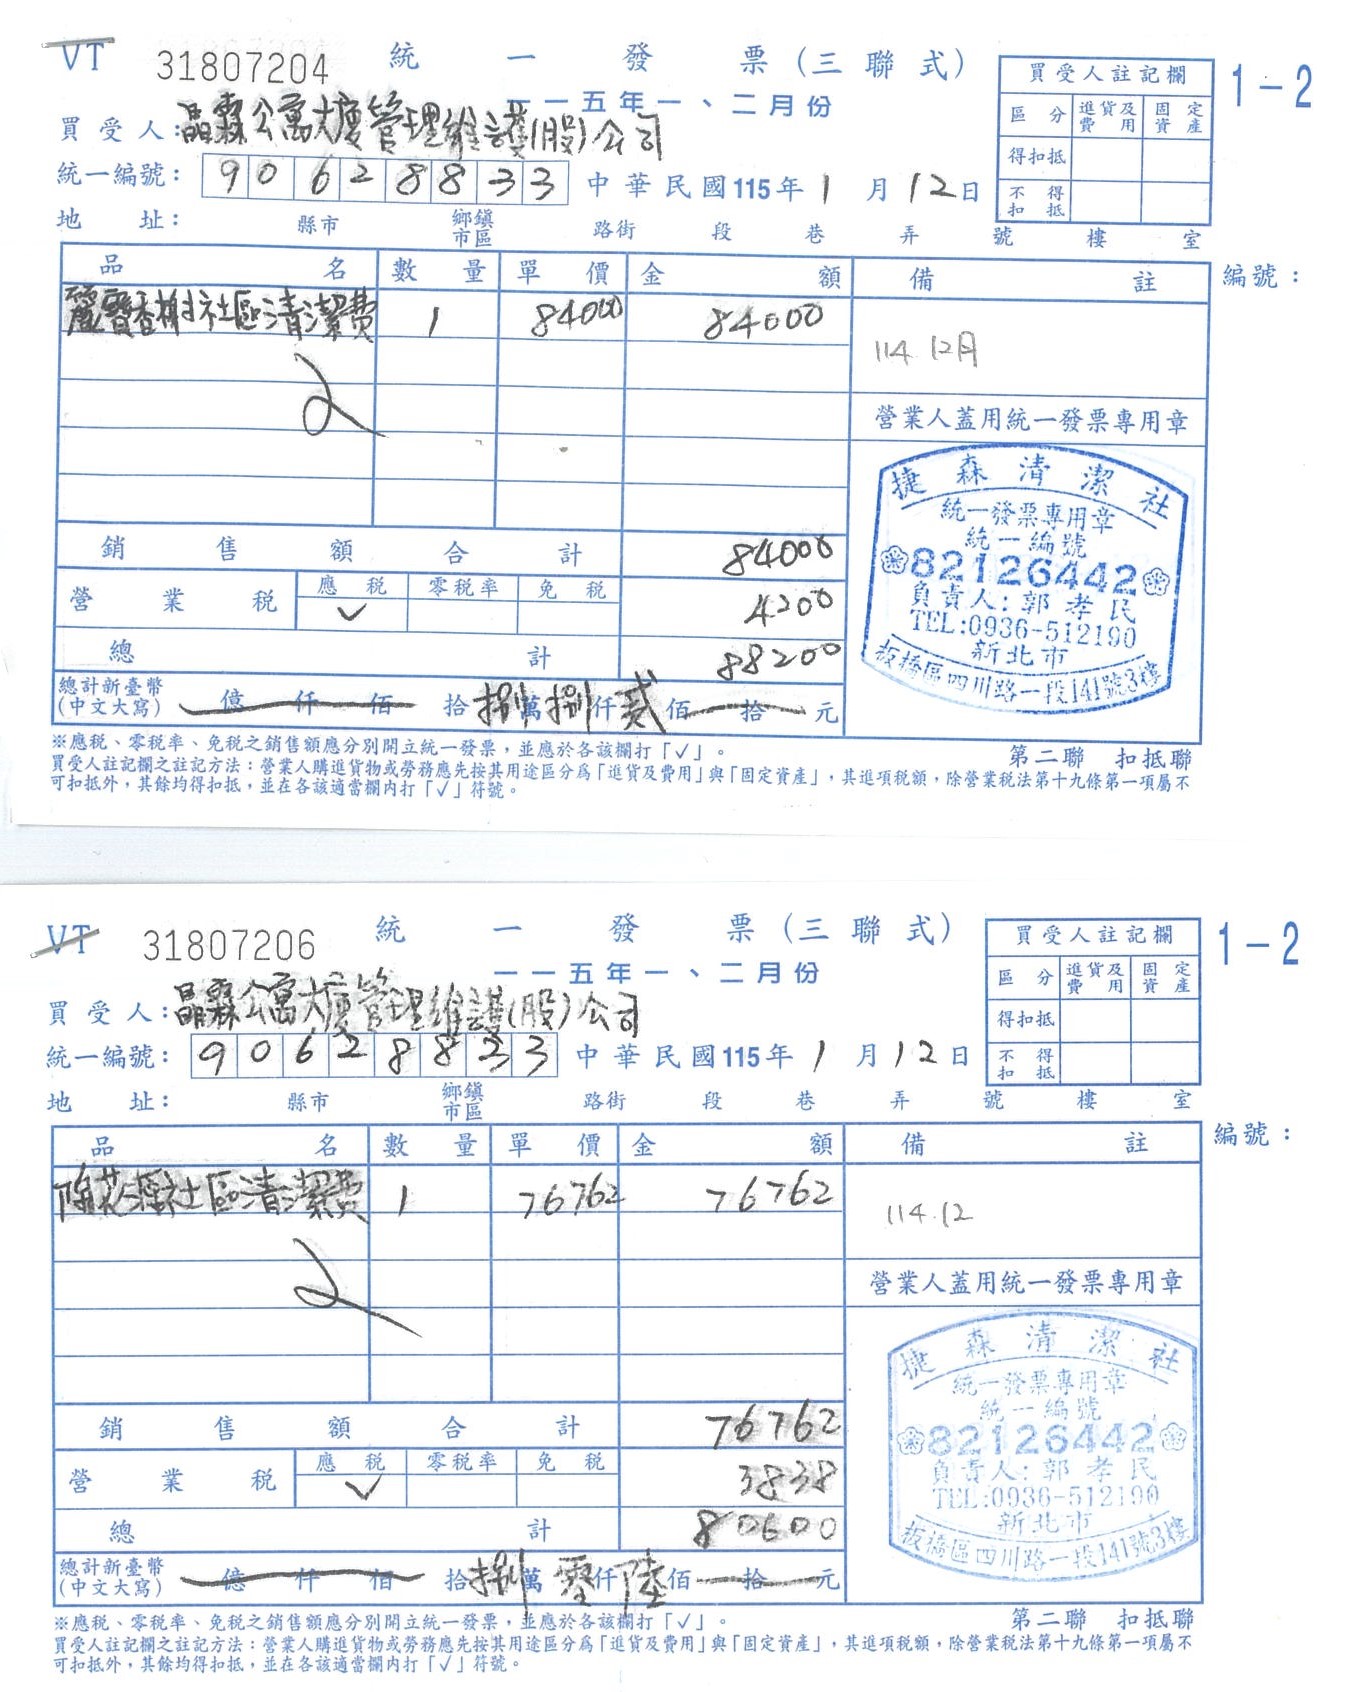 VT 31807204 統一發票(三聯式)
一一五年一、二月份
買受人:晶霖公寓大廈管理維護(股)公司
統一編號:90628833 中華民國115年1月12日
地址: 縣市 鄉鎮市區 路街 段 巷 弄 號 樓 室
買受人註記欄
區分 進貨及費用 固定資產
得扣抵
不得扣抵
1-2
編號:
品名 數量 單價 金額 備註
麗寶香榭社區清潔費 1 84000 84000
114.12月
營業人蓋用統一發票專用章
捷森清潔社
統一發票專用章
統一編號
82126442
負責人:郭孝民
TEL:0936-512190
新北市
板橋區四川路一段141號3樓
銷售額合計 84000
營業稅 應稅 ✓ 零稅率 免稅 4200
總計 88200
總計新臺幣(中文大寫) 億仟佰拾捌萬捌仟貳佰拾元
※應稅、零稅率、免稅之銷售額應分別開立統一發票,並應於各該欄打「✓」。
第二聯 扣抵聯
買受人註記欄之註記方法:營業人購進貨物或勞務應先按其用途區分為「進貨及費用」與「固定資產」,其進項稅額,除營業稅法第十九條第一項屬不
可扣抵外,其餘均得扣抵,並在各該適當欄內打「✓」符號。
VT 31807206 統一發票(三聯式)
一一五年一、二月份
買受人:晶霖公寓大廈管理維護(股)公司
統一編號:90628833 中華民國115年1月12日
地址: 縣市 鄉鎮市區 路街 段 巷 弄 號 樓 室
買受人註記欄
區分 進貨及費用 固定資產
得扣抵
不得扣抵
1-2
編號:
品名 數量 單價 金額 備註
社區清潔費 1 76762 76762
114.12
營業人蓋用統一發票專用章
捷森清潔社
統一發票專用章
統一編號
82126442
負責人:郭孝民
TEL:0936-512190
新北市
板橋區四川路一段141號3樓
銷售額合計 76762
營業稅 應稅 ✓ 零稅率 免稅 3838
總計 80600
總計新臺幣(中文大寫) 億仟佰拾捌萬零仟陸佰拾元
※應稅、零稅率、免稅之銷售額應分別開立統一發票,並應於各該欄打「✓」。
第二聯 扣抵聯
買受人註記欄之註記方法:營業人購進貨物或勞務應先按其用途區分為「進貨及費用」與「固定資產」,其進項稅額,除營業稅法第十九條第一項屬不
可扣抵外,其餘均得扣抵,並在各該適當欄內打「✓」符號。